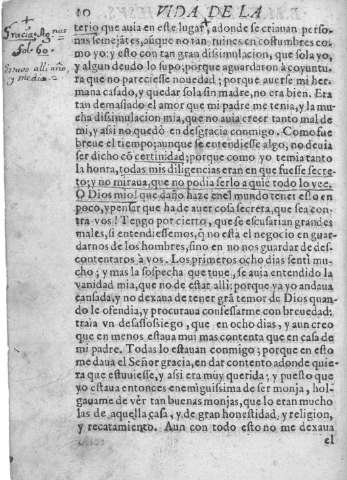 10 VIDA DE LA
+
Gracias. Ag nus
Fol. 60.
Estuuo alli año
y medio.
terio que auia en este lugar, adonde se criauan perso-
nas semejātes, aūque no tan ruines en costumbres co-
mo yo; y esto con tan gran dissimulacion, que sola yo,
y algun deudo lo supo; porque aguardaron à coyuntu-
ra que no pareciesse nouedad; porque auerse mi her-
mana casado, y quedar sola sin madre, no era bien. Era
tan demasiado el amor que mi padre me tenia, y la mu-
cha dissimulacion mia, que no auia creer tanto mal de
mi, y assi no quedò en desgracia conmigo. Como fue
breue el tiempo; aunque se entendiesse algo, no deuia
ser dicho cō certinidad; porque como yo temia tanto
la honra, todas mis diligencias eran en que fuesse secre-
to; y no miraua, que no podia serlo a quiē todo lo vee.
O Dios mio! que daño haze en el mundo tener esto en
poco, y pensar que ha de auer cosa secreta, que sea con-
tra vos! Tengo por cierto, que se escusarian grandes
males, si entendiessemos, q̄ no esta el negocio en guar-
darnos de los hombres, sino en no nos guardar de des-
contentaros à vos. Los primeros ocho dias senti mu-
cho; y mas la sospecha que tuue, se auia entendido la
vanidad mia, que no de estar alli: porque ya yo andaua
cansada, y no dexaua de tener grā temor de Dios quan-
do le ofendia, y procuraua confessarme con breuedad:
traia vn desassosiego, que en ocho dias, y aun creo
que en menos estaua mui mas contenta que en casa de
mi padre. Todas lo estauan conmigo; porque en esto
me daua el Señor gracia, en dar contento adonde quie-
ra que estuuiesse, y assi era muy querida; y puesto que
yo estaua entonces enemiguissima de ser monja, hol-
gauame de vèr tan buenas monjas, que lo eran mucho
las de aquella casa, y de gran honestidad, y religion,
y recatamiento. Aun con todo esto no me dexaua
el